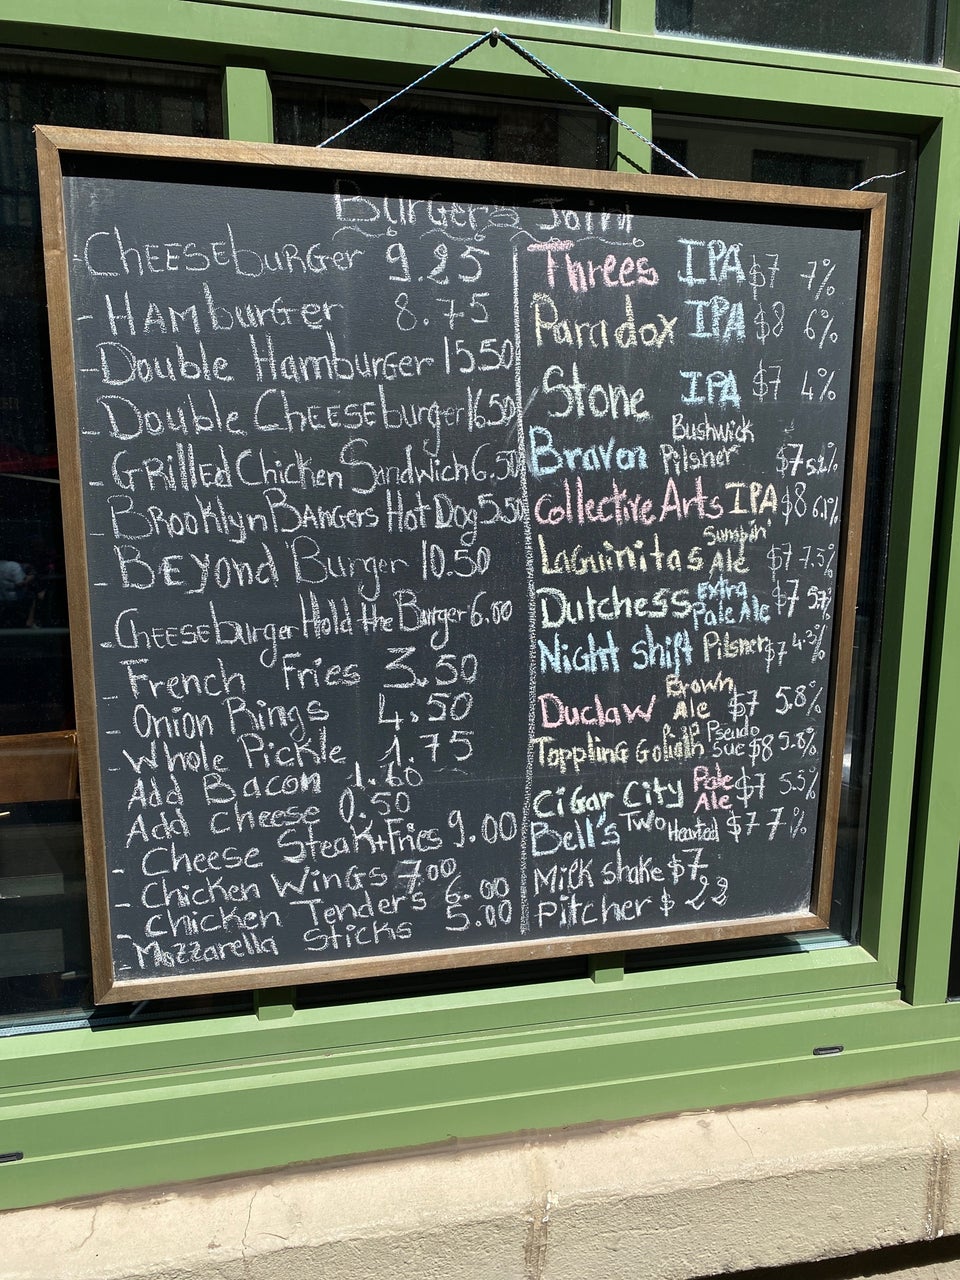 Burger Joint
- Cheeseburger 9.25
- Hamburger 8.75
- Double Hamburger 15.50
- Double Cheeseburger 16.50
- Grilled Chicken Sandwich 6.50
- Brooklyn Bangers Hot Dog 5.50
- Beyond Burger 10.50
- Cheeseburger Hold the Burger 6.00
- French Fries 3.50
- Onion Rings 4.50
- Whole Pickle 1.75
Add Bacon 1.60
Add Cheese 0.50
- Cheese Steak+Fries 9.00
- Chicken Wings 7.00
- Chicken Tender's 6.00
- Mozzarella Sticks 5.00
Threes IPA $7 7%
Paradox IPA $8 6%
Stone IPA $7 4%
Braven Bushwick Pilsner $7 5.2%
Collective Arts IPA $8 6.1%
Laguinitas Sumpin' Ale $7 7.5%
Dutchess Extra Pale Ale $7 5.7%
Night shift Pilsner $7 4.3%
Duclaw Brown Ale $7 5.8%
Toppling Goliath Pseudo Sue $8 5.8%
Cigar City Pale Ale $7 5.5%
Bell's Two Hearted $7 7%
Milk shake $7
Pitcher $22